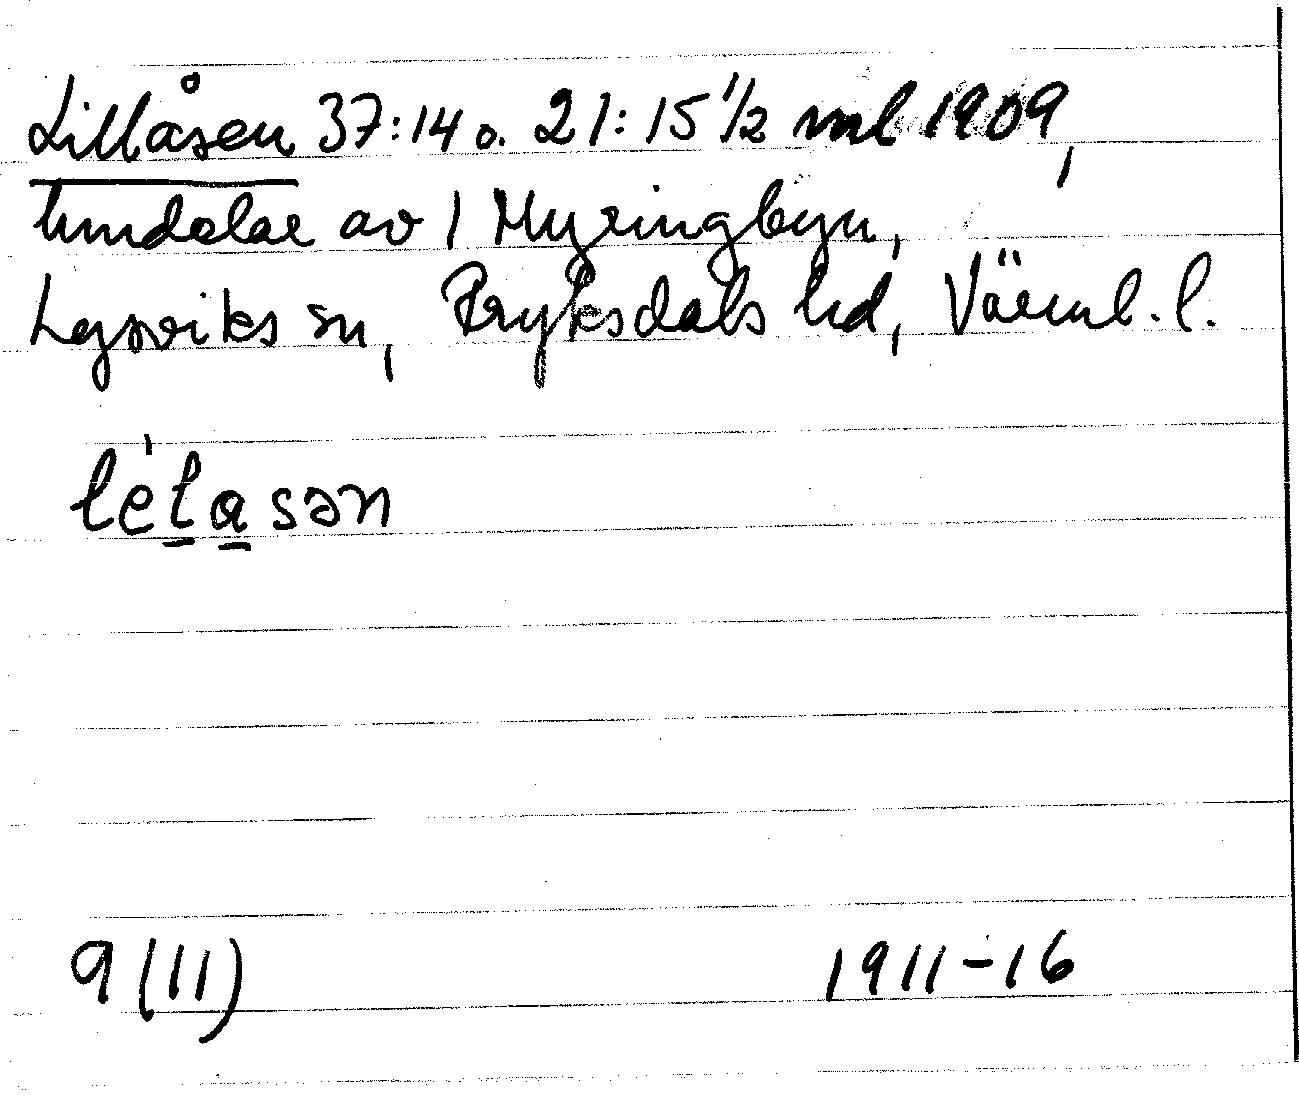 Lillåsen 37:14 o. 21:15 1/2 ml 1909,
hmdelar av 1 Myringbyn,
Lysviks sn, Fryksdals hd, Värml. l.
lét̲a̲sən
9 (11) 1911-16